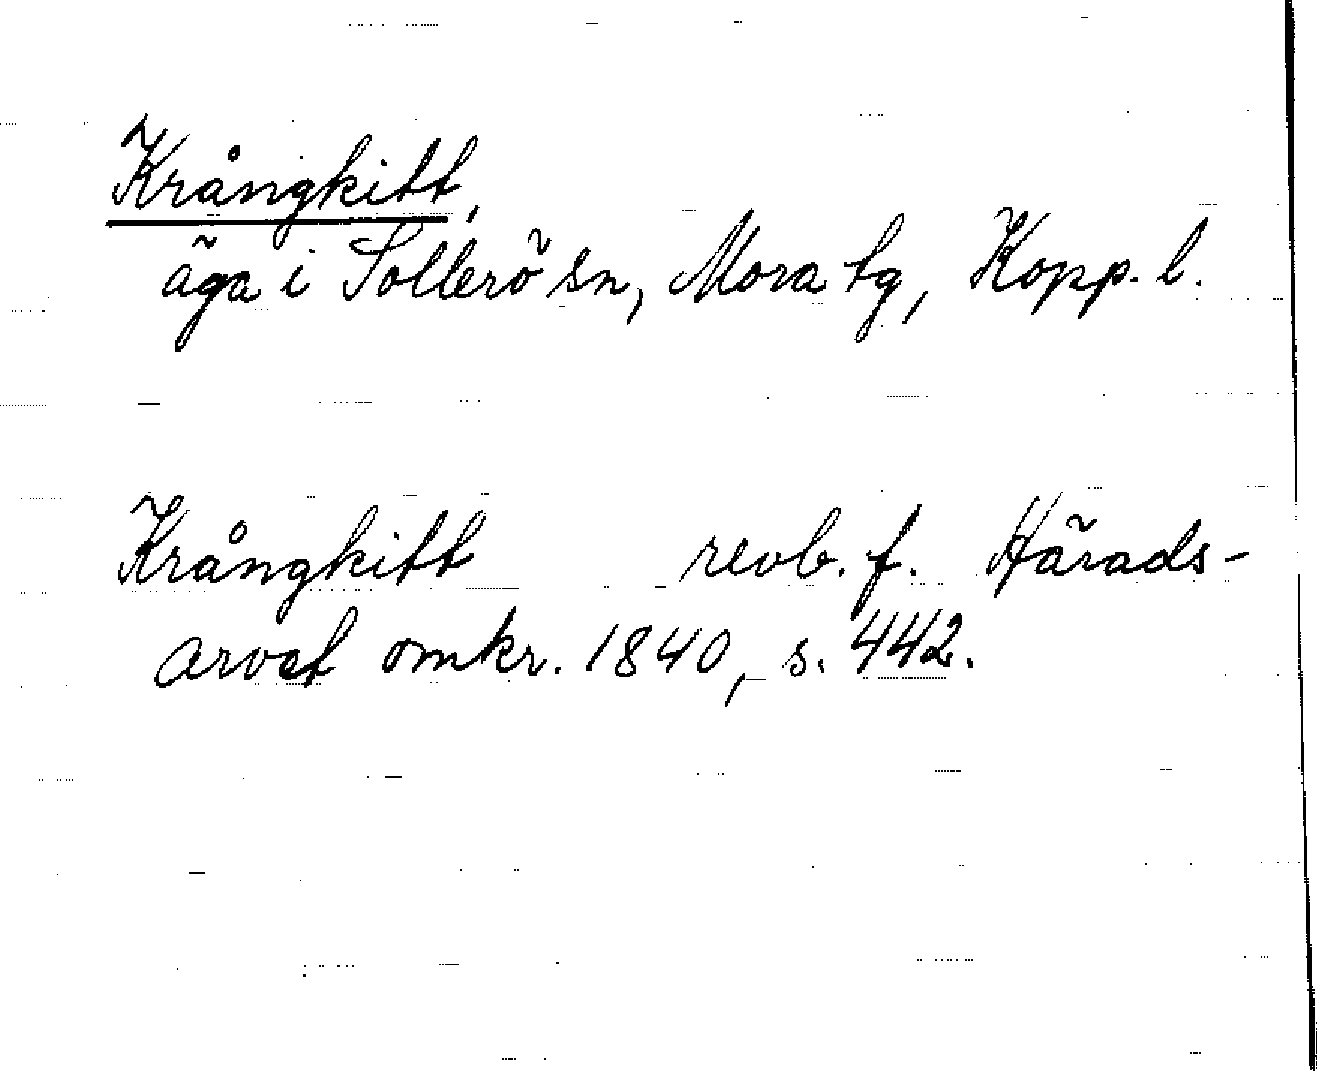 Krångkitt,
äga i Sollerö sn, Mora tg, Kopp. l.
Krångkitt revb. f. Härads-
arvet omkr. 1840, s. 442.